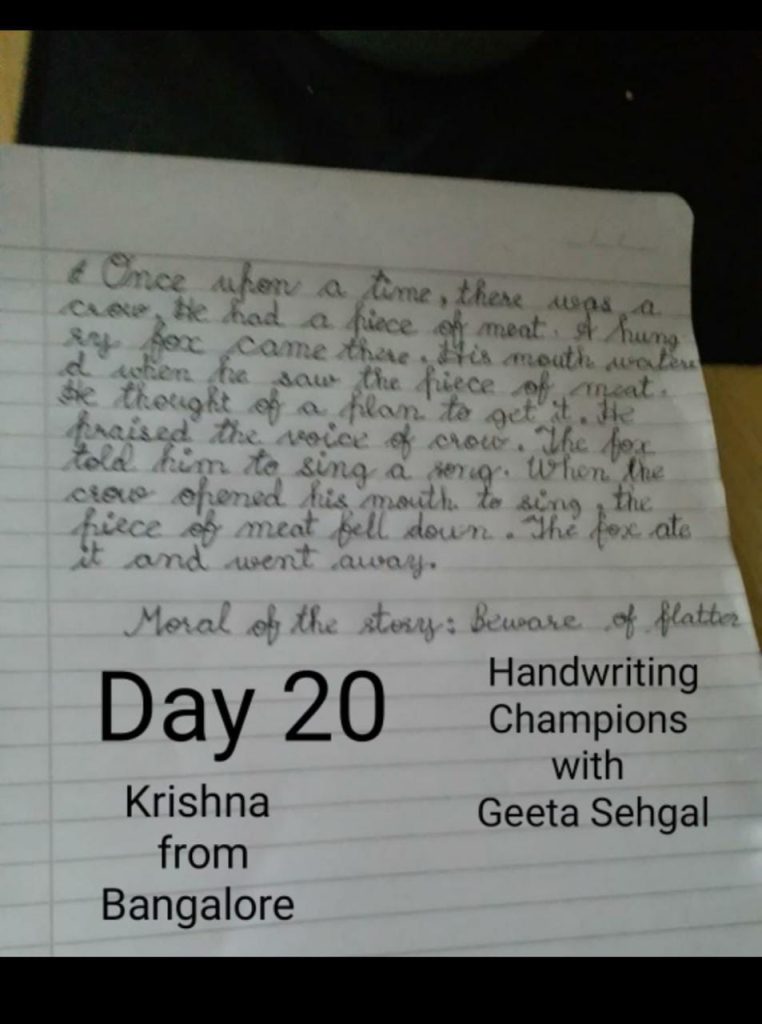 Once upon a time, there was a
crow. He had a piece of meat. A hung
ry fox came there. His mouth watere
d when he saw the piece of meat.
He thought of a plan to get it. He
praised the voice of crow. The fox
told him to sing a song. When the
crow opened his mouth to sing, the
piece of meat fell down. The fox ate
it and went away.
Moral of the story: Beware of flatter
Day 20
Krishna
from
Bangalore
Handwriting
Champions
with
Geeta Sehgal